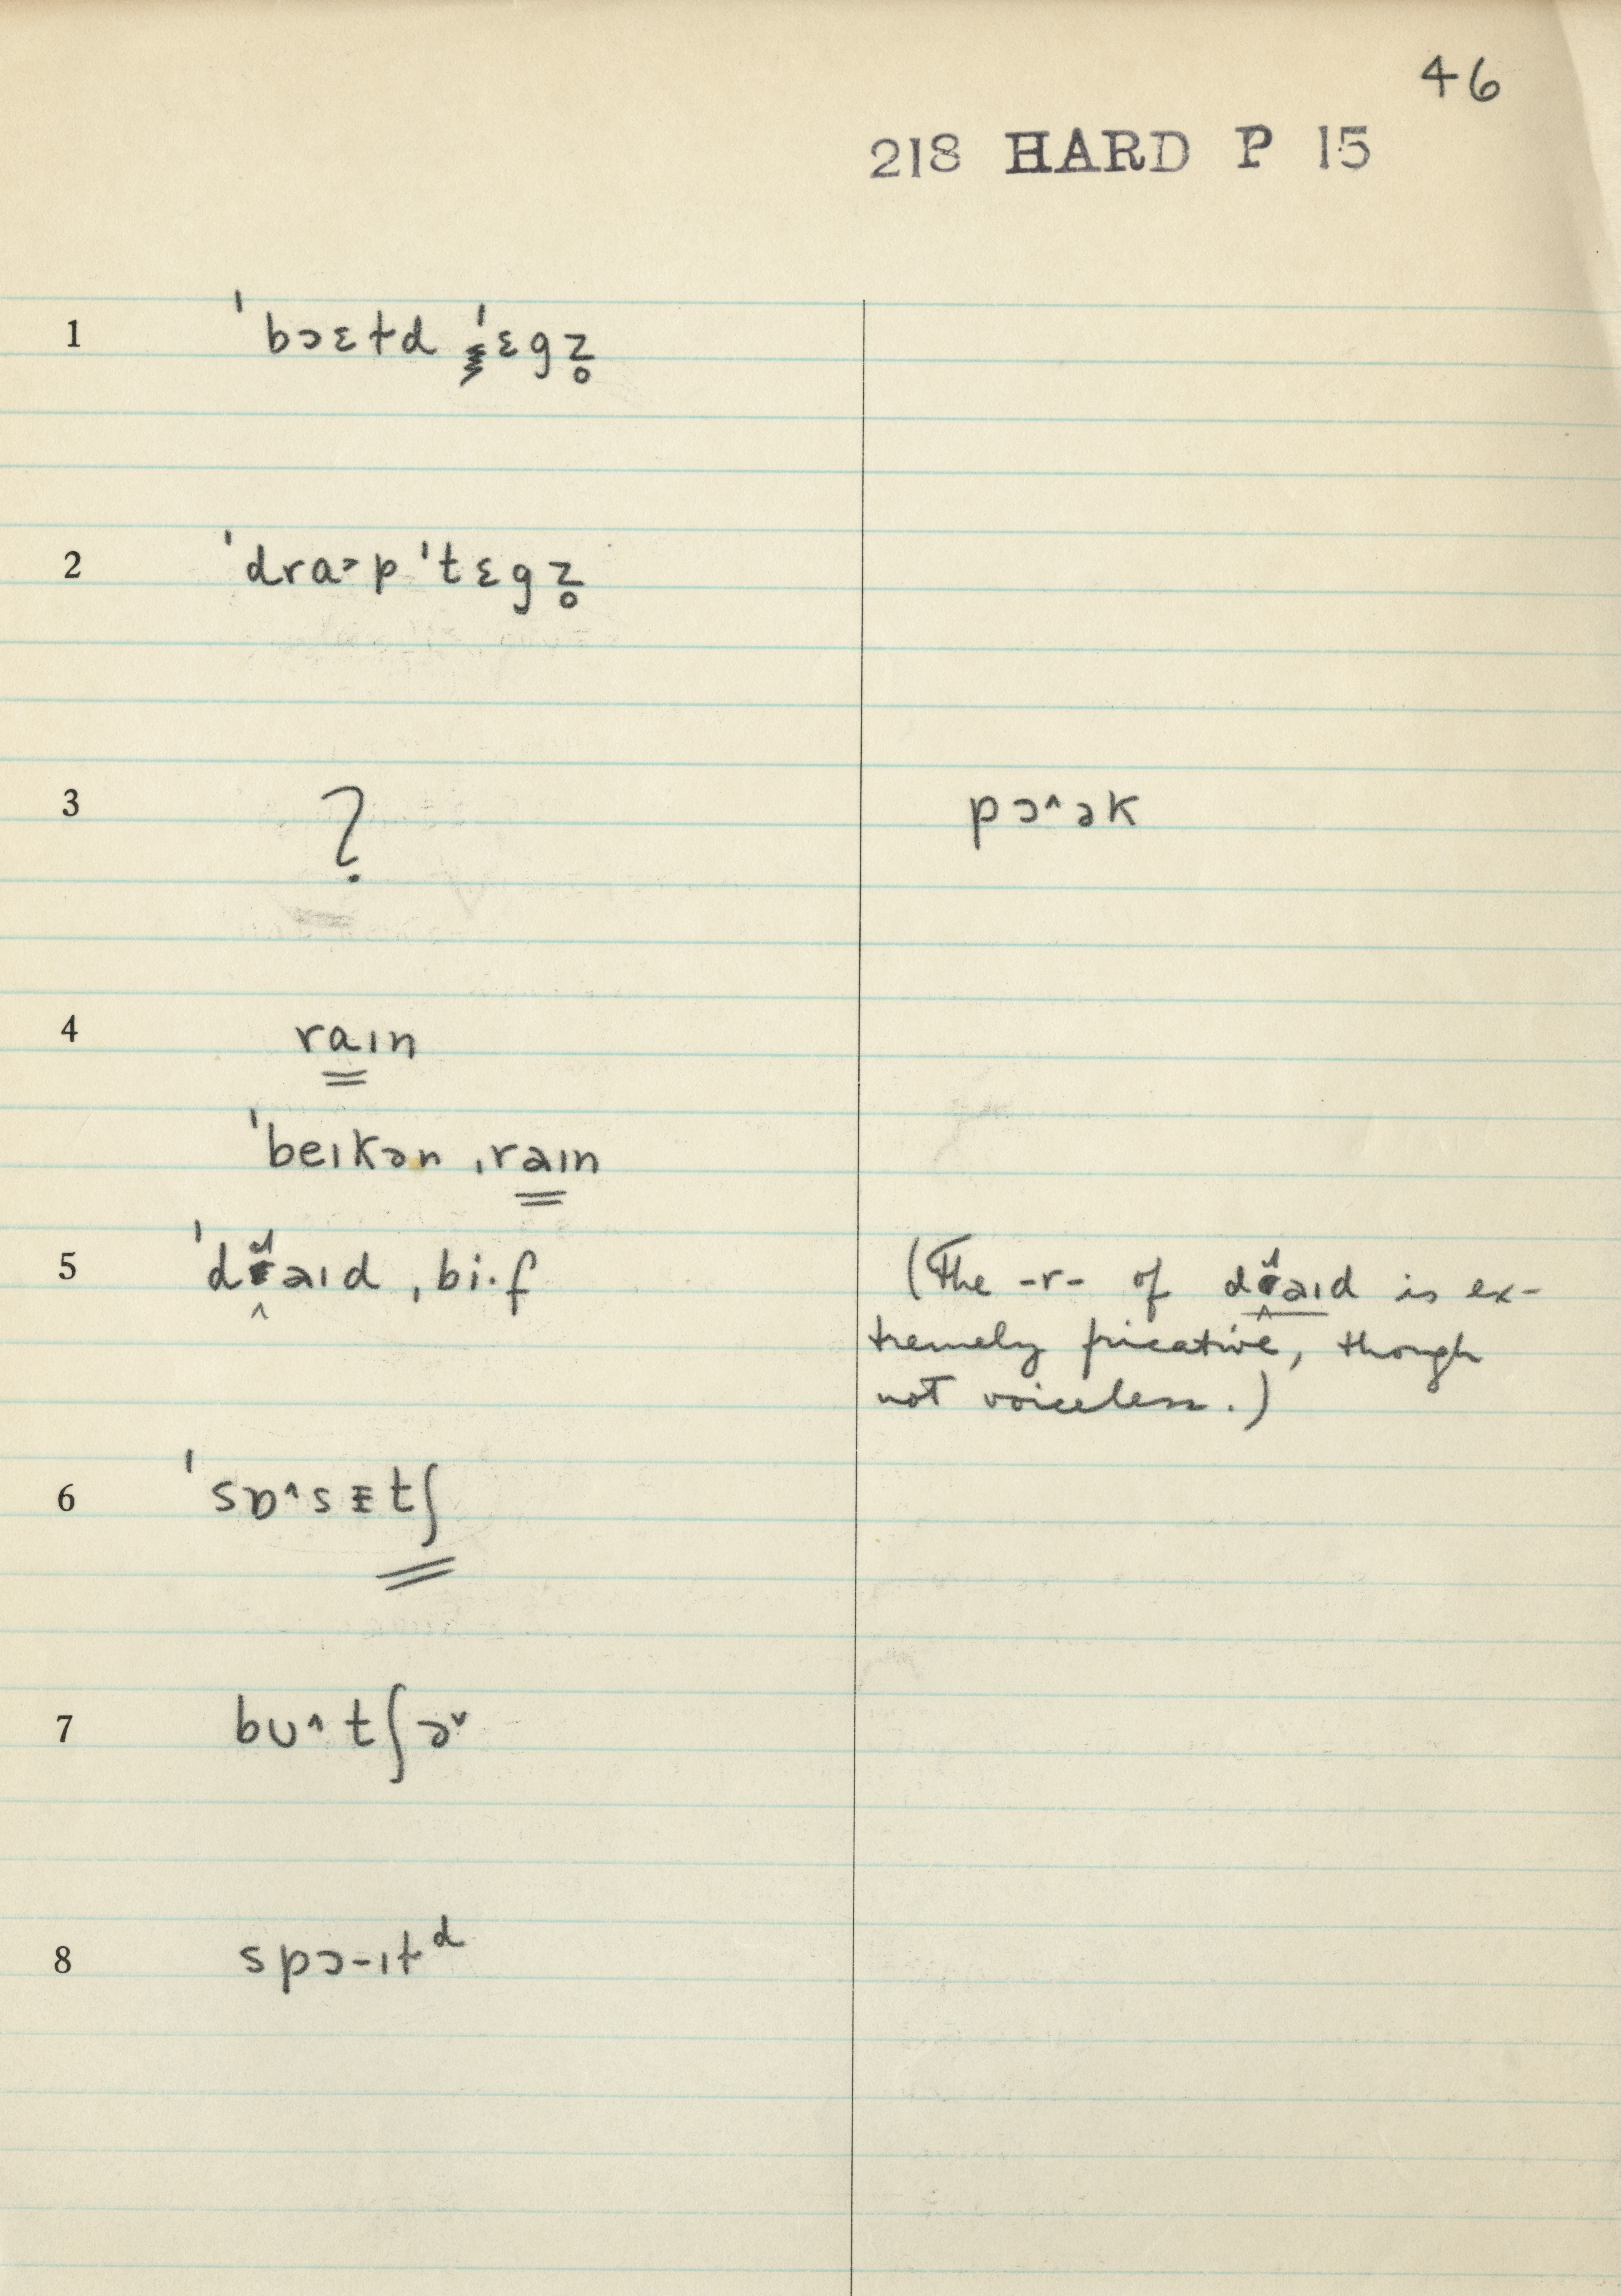 46
218 HARD P 15
1 ˈbɔɛɫd ˈɛgz̥
2 ˈdra˃p ˈtɛgz̥
3 ? pɔ^ək
4 raın
ˈbeıkən ˌraın
5 ˈdɹaıd ˌbi·f (The -r- of dɹaıd is ex-
tremely fricative, though
not voiceless.)
6 ˈsɒ^sɪtʃ
7 bᴜ^tʃə˅
8 spɔ-ıɫᵈ